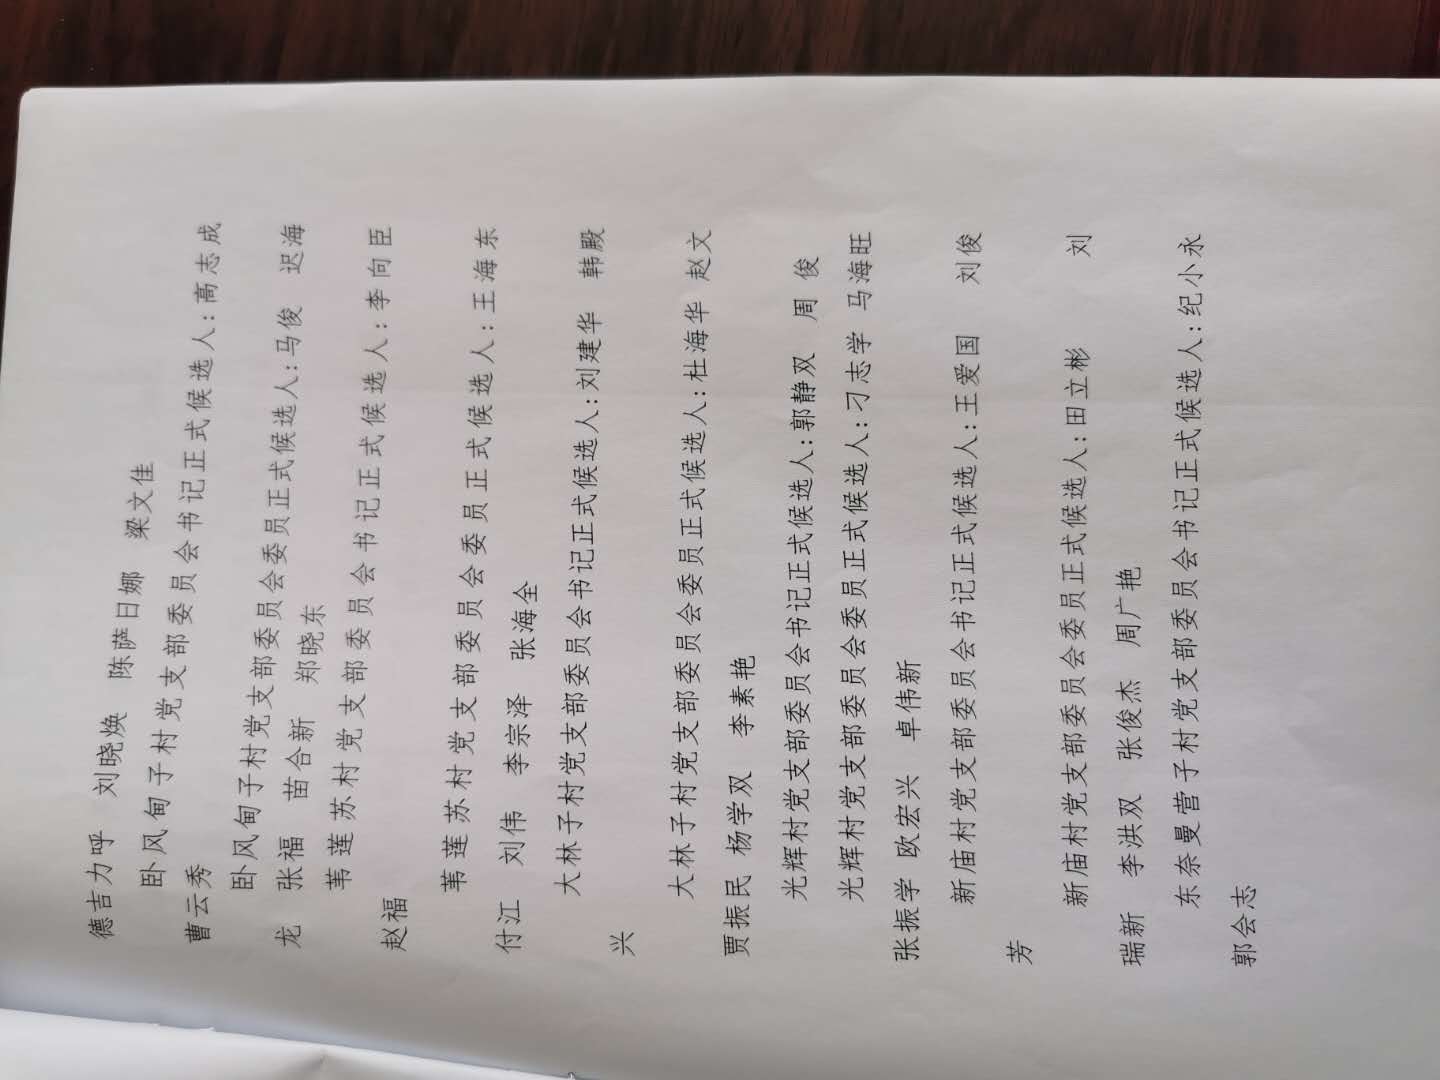 德吉力呼 刘晓焕 陈萨日娜 梁文佳
卧风甸子村党支部委员会书记正式候选人:高志成
曹云秀
卧风甸子村党支部委员会委员正式候选人:马俊 迟海
龙 张福 苗合新 郑晓东
苇莲苏村党支部委员会书记正式候选人:李向臣
赵福
苇莲苏村党支部委员会委员正式候选人:王海东
付江 刘伟 李宗泽 张海全
大林子村党支部委员会书记正式候选人:刘建华 韩殿
兴
大林子村党支部委员会委员正式候选人:杜海华 赵文
贾振民 杨学双 李素艳
光辉村党支部委员会书记正式候选人:郭静双 周 俊
光辉村党支部委员会委员正式候选人:刁志学 马海旺
张振学 欧宏兴 卓伟新
新庙村党支部委员会书记正式候选人:王爱国 刘俊
芳
新庙村党支部委员会委员正式候选人:田立彬 刘
瑞新 李洪双 张俊杰 周广艳
东奈曼营子村党支部委员会书记正式候选人:纪小永
郭会志